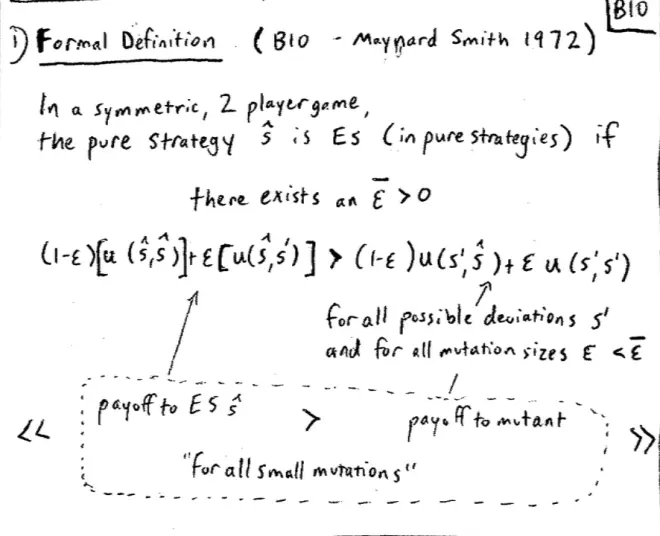 BIO
1) Formal Definition (BIO - Maynard Smith 1972)
In a symmetric, 2 player game,
the pure strategy ŝ is ES (in pure strategies) if
there exists an ε̄ > 0
(1-ε)[u (ŝ,ŝ)]+ε[u(ŝ,s')] > (1-ε)u(s',ŝ)+ ε u (s',s')
for all possible deviations s'
and for all mutation sizes ε < ε̄
payoff to ES ŝ > payoff to mutant
<< >>
"for all small mutations"